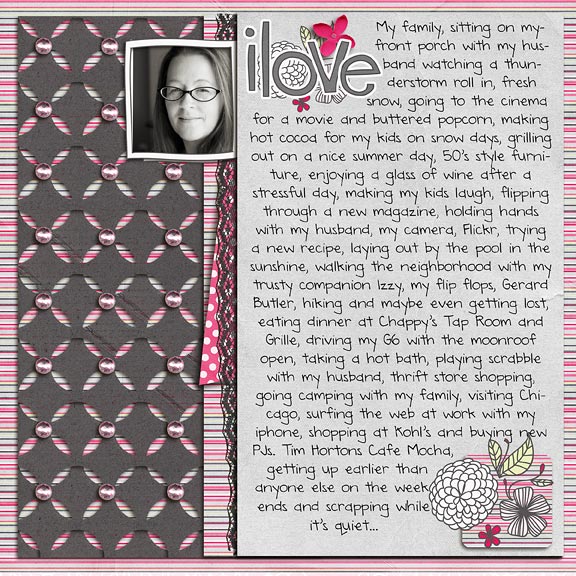 i love
My family, sitting on my
front porch with my hus-
band watching a thun-
derstorm roll in, fresh
snow, going to the cinema
for a movie and buttered popcorn, making
hot cocoa for my kids on snow days, grilling
out on a nice summer day, 50's style furni-
ture, enjoying a glass of wine after a
stressful day, making my kids laugh, flipping
through a new magazine, holding hands
with my husband, my camera, Flickr, trying
a new recipe, laying out by the pool in the
sunshine, walking the neighborhood with my
trusty companion Izzy, my flip flops, Gerard
Butler, hiking and maybe even getting lost,
eating dinner at Chappy's Tap Room and
Grille, driving my G6 with the moonroof
open, taking a hot bath, playing scrabble
with my husband, thrift store shopping,
going camping with my family, visiting Chi-
cago, surfing the web at work with my
iphone, shopping at Kohl's and buying new
PJs. Tim Hortons Cafe Mocha,
getting up earlier than
anyone else on the week
ends and scrapping while
it's quiet...